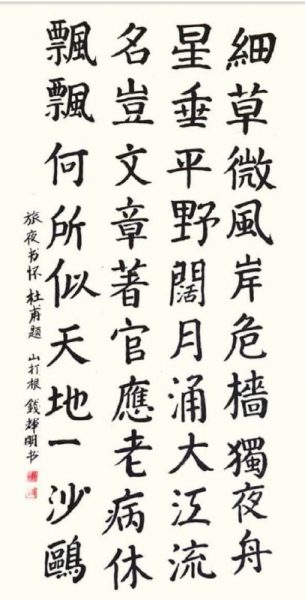 細草微風岸危檣獨夜舟
星垂平野闊月涌大江流
名豈文章著官應老病休
飄飄何所似天地一沙鷗
旅夜书怀 杜甫题 山打根 錢輝明书